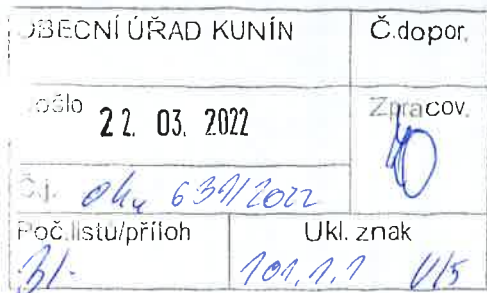 OBECNÍ ÚŘAD KUNÍN
Č.dopor.
Došlo 22. 03. 2022
Zpracov.
Č.j. oku 639/2022
Poč.listu/příloh
Ukl. znak
3/-
101.1.1 V/5